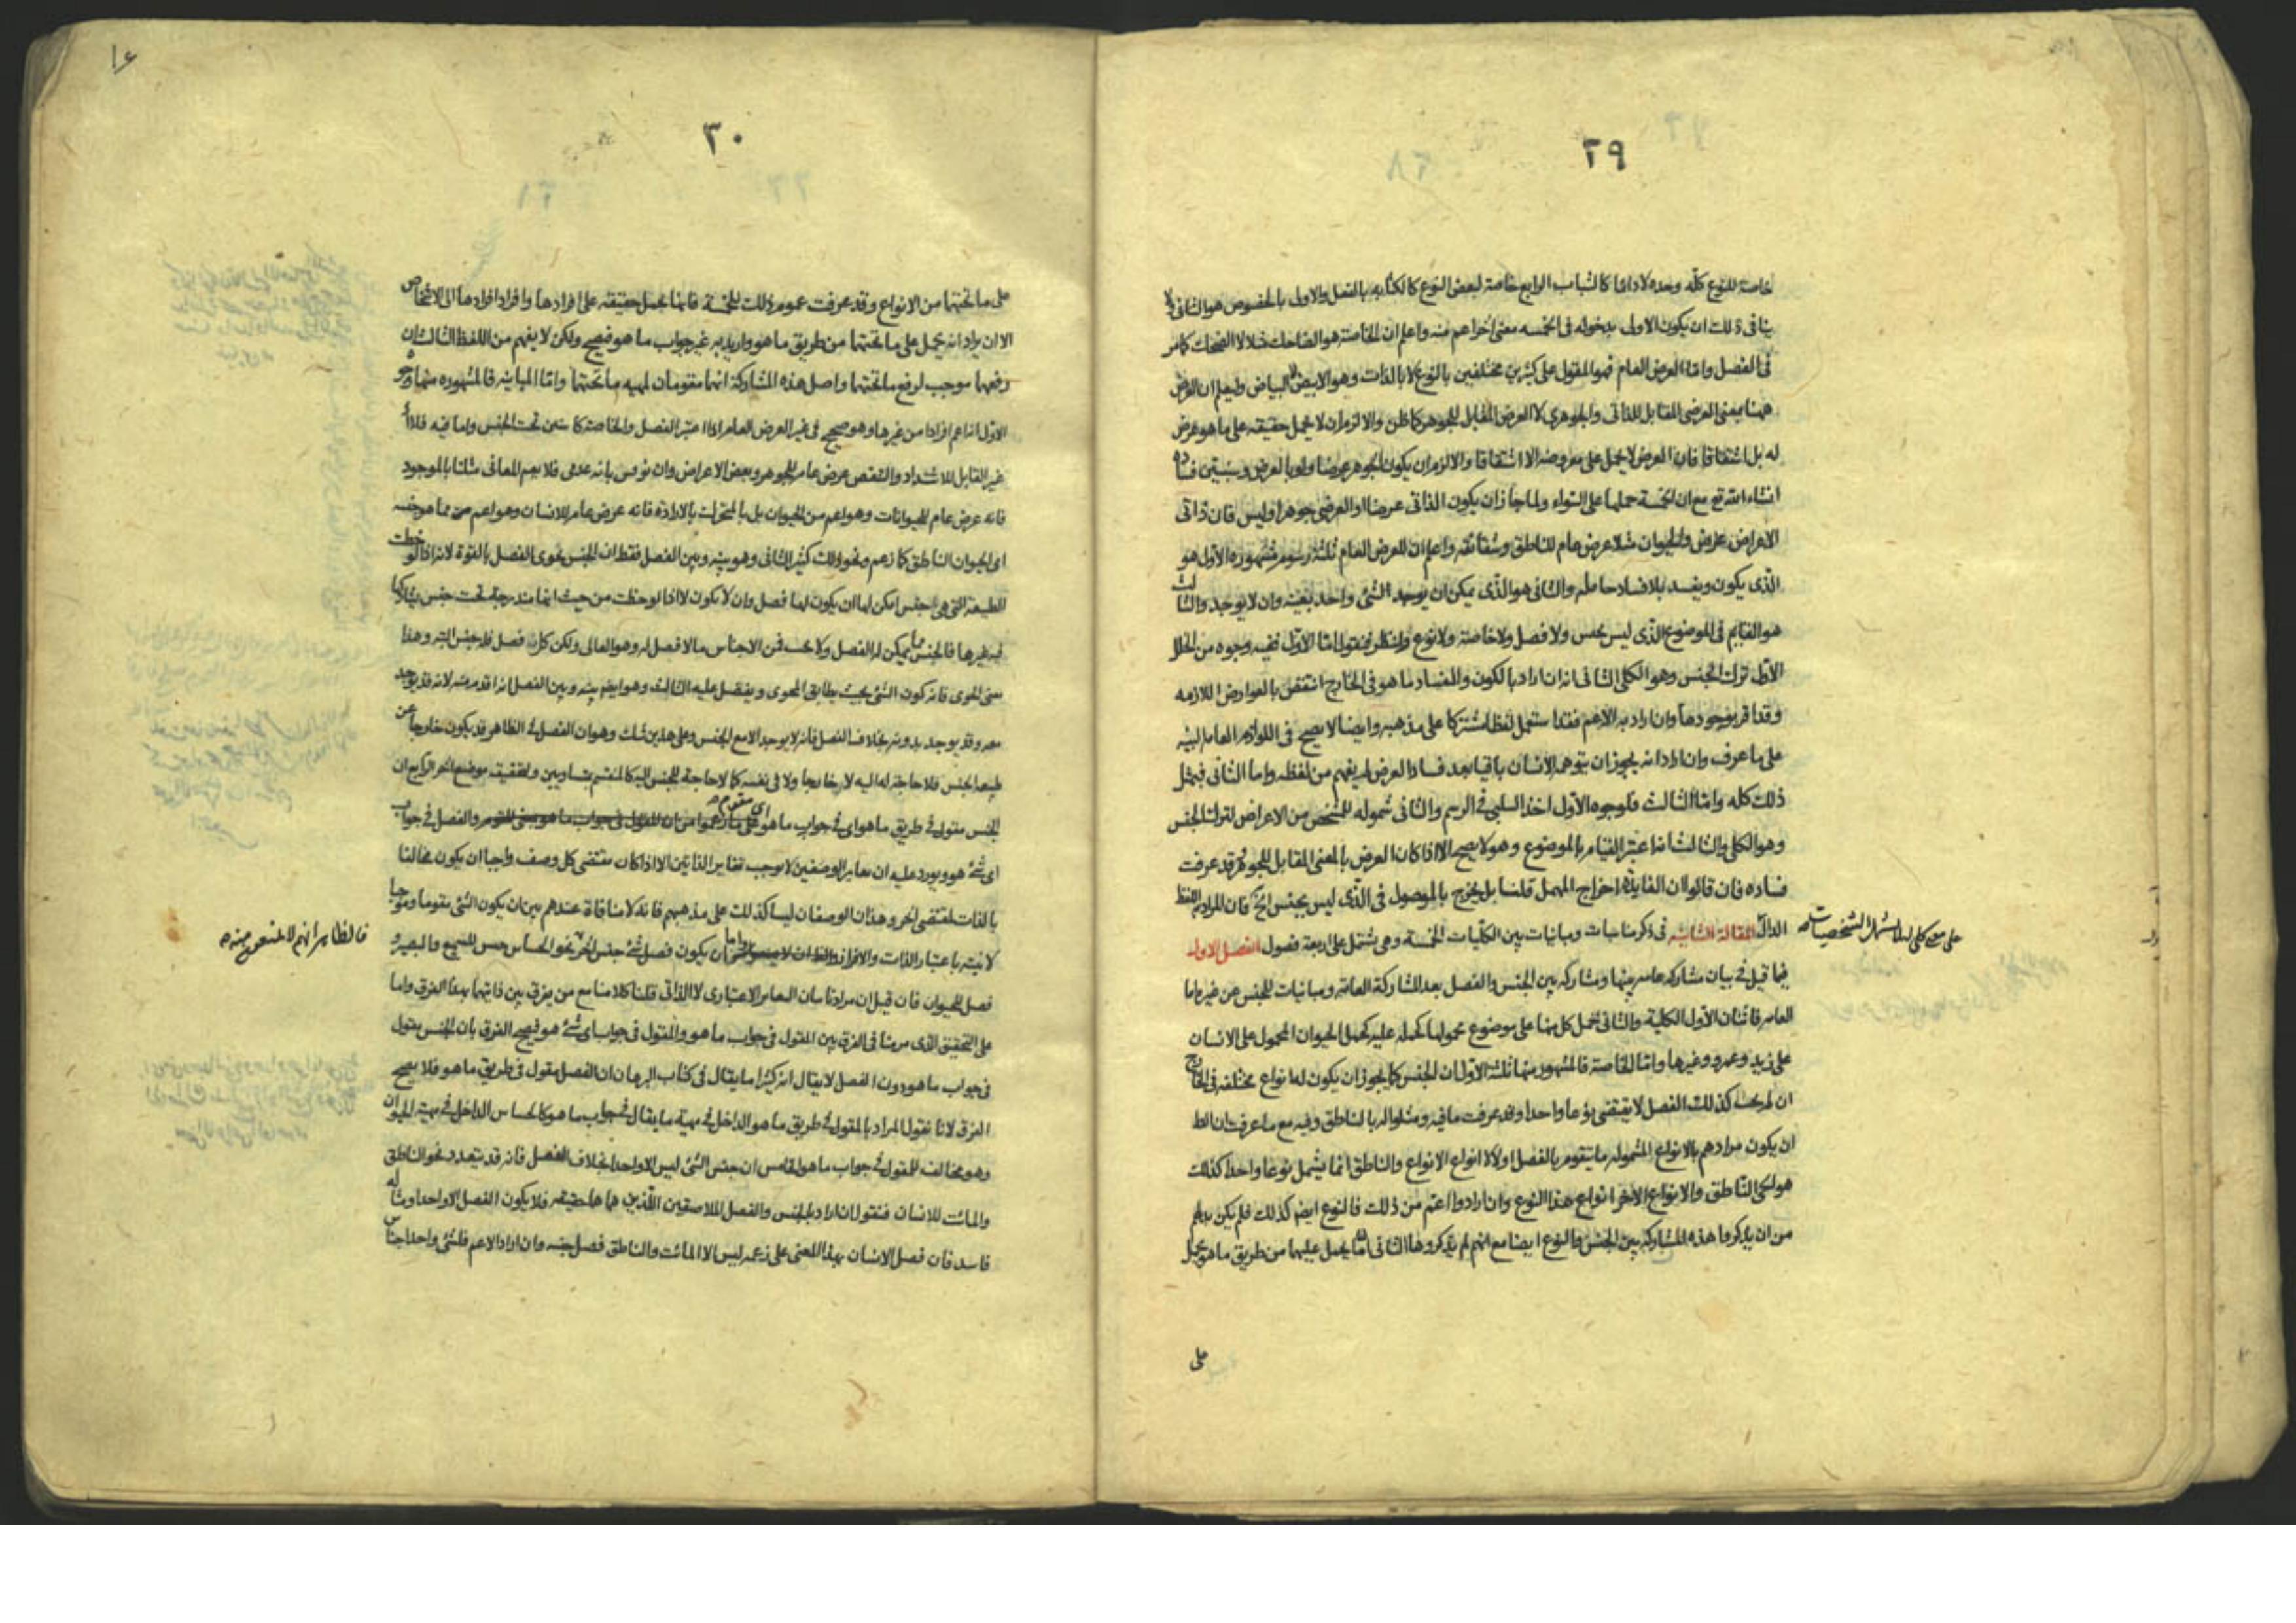 ٢٩
خاصة للنوع كله وحده لا دائما كالشباب الرابع خاصة لبعض النوع كالكتابه بالفعل والاول بالخصوص هو الثانى ولا
ينافى ذلك ان يكون الاولى بدخوله فى الخمسه معنى اخر اعم منه واعلم ان الخاصة هو الضاحك مثلا لا الضحك كما مر
فى الفصل واما العرض العام فهو المقول على كثيرين مختلفين بالنوع لا بالذات وهو الابيض لا البياض وليعلم ان العرض
ههنا بمعنى العرضى المقابل للذاتى والجوهرى لا العرض المقابل للجوهر كما ظن والا لزم ان لا يحمل حقيقة على ما هو عرض
له بل اشتقاقا فان العرض لا يحمل على معروضه الا اشتقاقا والا لزم ان يكون الجوهر عرضا ولو بالعرض وسيتبين فساده
انشاء الله تع مع ان الخمسة حملها على السواء ولما جاز ان يكون الذاتى عرضا او العرضى جوهرا وليس فان ذاتى
الاعراض عروض والحيوان مثلا عرض عام للناطق واعلم ان للعرض العام ثلثة رسوم مشهوره الاول هو
الذى يكون ويفسد بلا فساد حامله والثانى هو الذى يمكن ان يوجد لشئ واحد بعينه وان لا يوجد والثالث
هو القايم فى الموضوع الذى ليس بجنس ولا فصل ولا خاصة ولا نوع ولننظر فنقول اما الاول ففيه وجوه من الخلل
الاول ترك الجنس وهو الكلى الثانى انه ان اراد بالكون والفساد ما هو فى الخارج انتقض بالعوارض اللازمه
وقد اقر بوجودها وان اراد به الاعم فقد استعمل لفظا مشتركا على مذهبه وايضا لا يصح فى اللوازم العامه البينه
على ما عرف وان اراد انه يجوز ان يتوهم الانسان باقيا بعد فساد العرض لم يفهم من لفظه واما الثانى فيمثل
ذلك كله واما الثالث فلوجوه الاول اخذ السلبى فى الرسم والثانى شموله للشخص من الاعراض لترك الجنس
وهو الكلى والثالث انه اعتبر القيام بالموضوع وهو لا يصح الا اذا كان العرض بالمعنى المقابل للجوهر وقد عرفت
فساده فان قالوا ان الفايدة اخراج المهمل قلنا بل يخرج بالموصول فى الذى ليس بجنس الخ فان المراد به اللفظ
الدال المقالة الثانيه فى ذكر مناسبات ومباينات بين الكليات الخمسة وهى تشتمل على اربعة فصول الفصل الاول
فيما قيل فى بيان مشاركه عامه بينها ومشاركه بين الجنس والفصل بعد المشاركة العامه ومباينات للجنس عن غيره اما
العامه فاثنان الاول الكلية والثانى حمل كل منها على موضوع محمولها كحمله عليه كحمل الحيوان المحمول على الانسان
على زيد وعمرو وغيرها واما الخاصة فالمشهور منها ثلثة الاول ان الجنس كما يجوز ان يكون له انواع مختلفه فى الخارج
ان لم يجب كذلك الفصل لا يقتضى نوعا واحدا وقد عرفت ما فيه ومثلوا له بالناطق وفيه مع ما عرفت ان الظ
ان يكون مرادهم بالانواع المشموله ما يتقوم بالفصل اولا لا انواع الانواع والناطق انما يشمل نوعا واحدا كذلك
هو الحى الناطق والانواع الاخر انواع هذا النوع وان ارادوا اعم من ذلك فالنوع ايضا كذلك فلم يكن بد لهم
من ان يذكروا هذه المشاركة بين الجنس والنوع ايضا مع انهم لم يذكروها الثانى ان ما يحمل عليهما من طريق ما هو يحمل
على
٣٠
١٤
على ما تحتها من الانواع وقد عرفت عموم ذلك للخمسة فانها تحمل حقيقة على افرادها وافراد افرادها الى الاشخاص
الا ان يراد انه يحمل على ما تحتها من طريق ما هو واريد به غير جواب ما هو فصحيح ولكن لا يفهم من اللفظ الثالث ان
رفعهما موجب لرفع ما تحتهما واصل هذه المشاركة انهما مقومان لمهيه ما تحتهما واما المباينه فالمشهوره منها وجوه
الاول انه اعم افرادا من غيرها وهو صحيح فى غير العرض العام اذا اعتبر الفصل والخاصة كائنين تحت الجنس واما فيه فلا
غير القابل للاشتداد والتنقص عرض عام للجوهر وبعض الاعراض وان نوقش بانه عدمى فلا يعم المعانى مثلنا بالموجود
فانه عرض عام للحيوانات وهو اعم من الحيوان بل بالمتحرك بالارادة فانه عرض عام للانسان وهو اعم من
اى الحيوان الناطق كما زعم ونحو ذلك كثير الثانى وهو بينه وبين الفصل فقط ان الجنس يحوى الفصل بالقوة لانه اذا لوحظت
الطبيعة التى هى جنس امكن لها ان يكون لها فصل وان لا يكون لا اذا لوحظت من حيث انها مندرجة تحت جنس يشاركها
فيه غيرها فالجنس مما يمكن له الفصل ولا يجب فمن الاجناس ما لا فصل له وهو العالى ولكن كل فصل فله جنس البته وهذا
معنى الحوى فانه كون الشئ بحيث يطابق المحوى ويفضل عليه الثالث وهو ايضا بينه وبين الفصل انه اقدم منه لانه قد يوجد
معه وقد يوجد بدونه بخلاف الفصل فانه لا يوجد الا مع الجنس وعلى هذين شك وهو ان الفصل فى الظاهر قد يكون خارجا عن
طبيعة الجنس فلا حاجة له اليه لا خارجا ولا فى نفسه كما لا حاجة للجنس اليه كالمنقسم بمتساويين وتحقيقه موضع اخر الرابع ان
الجنس مقول فى طريق ما هو اى فى جواب ما هو والفصل فى جواب
اى شئ هو ويورد عليه ان تغاير الوصفين لا يوجب تغاير الذاتين الا اذا كان مقتضى كل وصف واجبا ان يكون مخالفا
بالذات لمقتضى الاخر وهذان الوصفان ليسا كذلك على مذهبهم فانه لا منافاة عندهم بين ان يكون الشئ مقوما ومقوما
لانيته باعتبار الذات ان يكون فصل شئ جنس اخر نحو الحساس جنس للسميع والبصير و
فصل للحيوان فان قيل ان مرادنا بيان التغاير الاعتبارى لا الذاتى قلنا كلامنا مع من يفرق بين ذاتيهما بهذا الفرق واما
على التحقيق الذى مر منا فى الفرق بين المقول فى جواب ما هو والمقول فى جواب اى شئ هو فيصح الفرق بان الجنس مقول
فى جواب ما هو دون الفصل لا يقال انه كثيرا ما يقال فى كتاب البرهان ان الفصل مقول فى طريق ما هو فلا يصح
الفرق لانا نقول المراد بالمقول فى طريق ما هو الداخل فى مهية ما يقال فى جواب ما هو كالحساس الداخل فى مهية الحيوان
وهو مخالف للمقول فى جواب ما هو الخامس ان جنس الشئ ليس الا واحدا بخلاف الفصل فانه قد يتعدد نحو الناطق
والمائت للانسان فنقول ان اراد الجنس والفصل الملاصقين اللذين هما له حقيقه فلا يكون الفصل الا واحدا ومثاله
فاسد فان فصل الانسان بهذا المعنى على زعمه ليس الا المائت والناطق فصل جنسه وان اراد الاعم فللشئ واحد اجناس
فالظاهر انهم لا